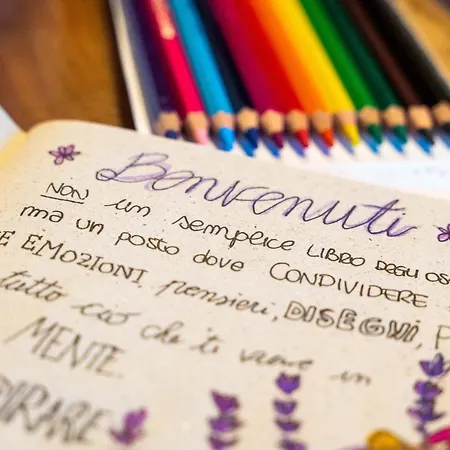 Benvenuti
NON un semplice LIBRO DEGLI OS
ma un posto dove CONDIVIDERE
E EMOZIONI, pensieri, DISEGNI, P
tutto ciò che ti viene in
MENTE.
DIRARE